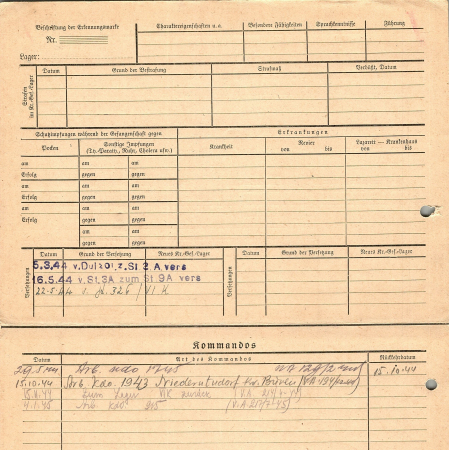 Beschriftung der Erkennungsmarke
Nr.
Lager:
Charaktereigenschaften u. a.
Besondere Fähigkeiten
Sprachkenntnisse
Führung
Strafen im Kr.-Gef.-Lager
Datum
Grund der Bestrafung
Strafmaß
Verbüßt, Datum
Schutzimpfungen während der Gefangenschaft gegen
Erkrankungen
Pocken
Sonstige Impfungen
(Ty.-Paraty., Ruhr, Cholera usw.)
Krankheit
Revier
von bis
Lazarett — Krankenhaus
von bis
am am am
Erfolg gegen gegen
am am am
Erfolg gegen gegen
am am am
Erfolg gegen gegen
am am am
gegen gegen
Versetzungen
Datum
Grund der Versetzung
Neues Kr.-Gef.-Lager
Versetzungen
Datum
Grund der Versetzung
Neues Kr.-Gef.-Lager
5.3.44 v. Dul z. St. 2 A vers
16.5.44 v. St. 3A zum St. 9A vers
22.5.44 v. 326 / VI K
Kommandos
Datum
Art des Kommandos
Rückkehrdatum
29.5.44 Arb. Kdo 1745
15.10.44
15.10.44 Arb. Kdo. 1943 Niederntudorf Kr. Büren
zum Lager VIK
4.1.45 Arb. Kdo. 915